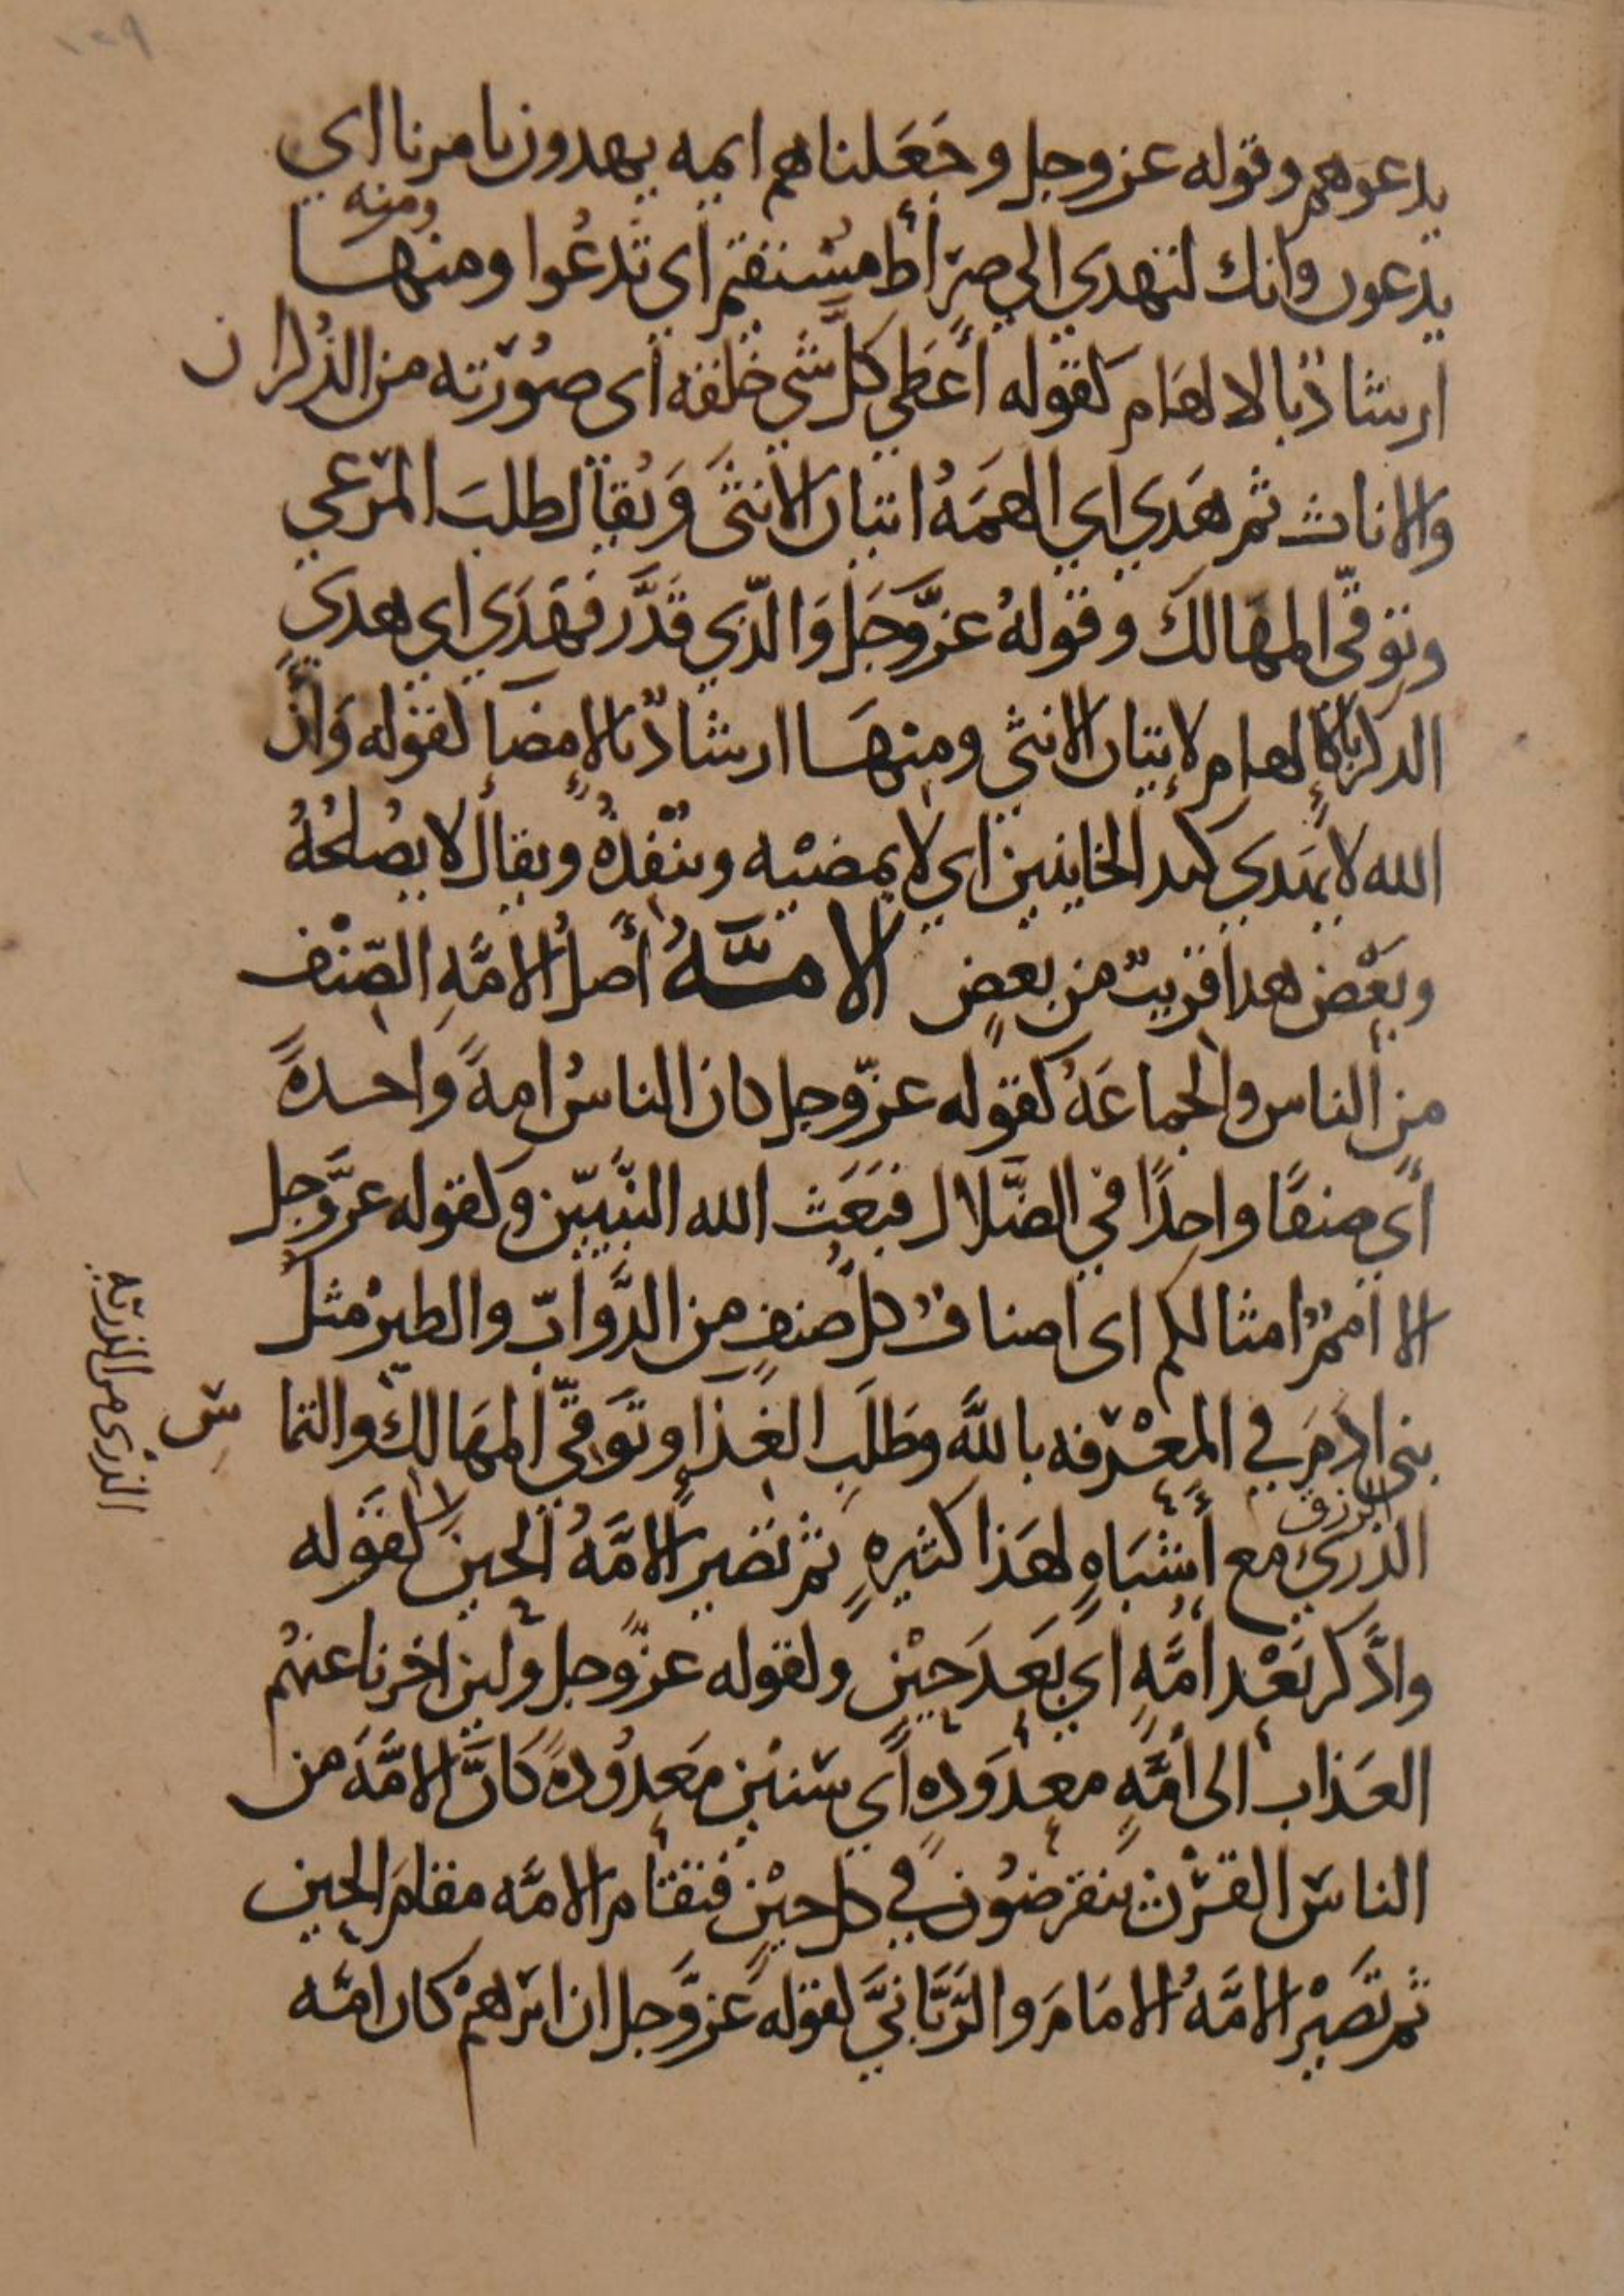 يدعوهم وقوله عز وجل وجعلناهم ايمه يهدون بامرنا اي
ومنه
يدعون وانك لتهدي الي صراط مستقيم اي تدعوا ومنها
ارشاد بالالهام كقوله أعطي كل شي خلقه أي صورته من الذكران
والاناث ثم هدي اي الهمه اتيان الانثى ويقال طلب المرعي
وتوقي المهالك وقوله عز وجل والذي قدر فهدي اي هدي
الذكر بالالهام لاتيان الانثي ومنها ارشاد بالامضا كقوله وان
الله لا يهدي كيد الخاينين اي لا يمضيه وينفذه ويقال لا يصلحه
وبعض هدا قريب من بعض الامه أصل الامه الصنف
من الناس والجماعه كقوله عز وجل كان الناس امة واحدة
أي صنفا واحدا في الضلال فبعث الله النبيين وكقوله عز وجل
الا امم امثالكم اى اصناف كل صنف من الدواب والطير مثل
بنى ادم في المعرفه بالله وطلب الغذا وتوقي المهالك والتماس
الرزق
الذري مع أشباه لهذا كثيره ثم تصير الامه الحين كقوله
وادكر بعد امه اي بعد حين وكقوله عز وجل ولين اخرنا عنهم
العذاب الى امه معدوده أي سنين معدوده كان الامه من
الناس القرن ينقرضون في كل حين فتقام الامه مقام الحين
ثم تصير الامه الامام والرباني كقوله عز وجل ان ابرهيم كان امه
الذرى من الذريه